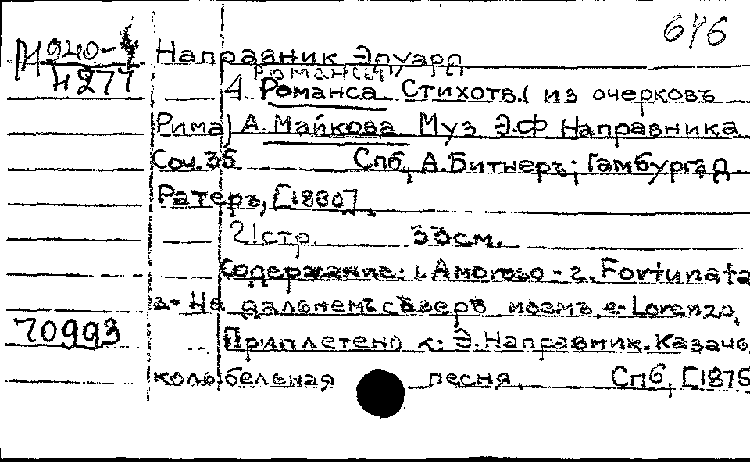 646
М 940-4
Направник Эдуард
Романсы
4277
4 Романса Стихотв.( из очерковъ
Рима) А. Майкова Муз Э.Ф Направника
Соч. 35 Спб, А. Битнеръ; Гамбургъ, Д.
Ратеръ, [1880].
21 стр. 33 см.
Содержание: 1. Amoroso - 2. Fortunata
3.- На дальнемъ сѣверѣ моемъ, 4- Lorenzo,
70993
Приплетено к: Э. Направник. Казачь
колыбельная песня. Спб, [1875